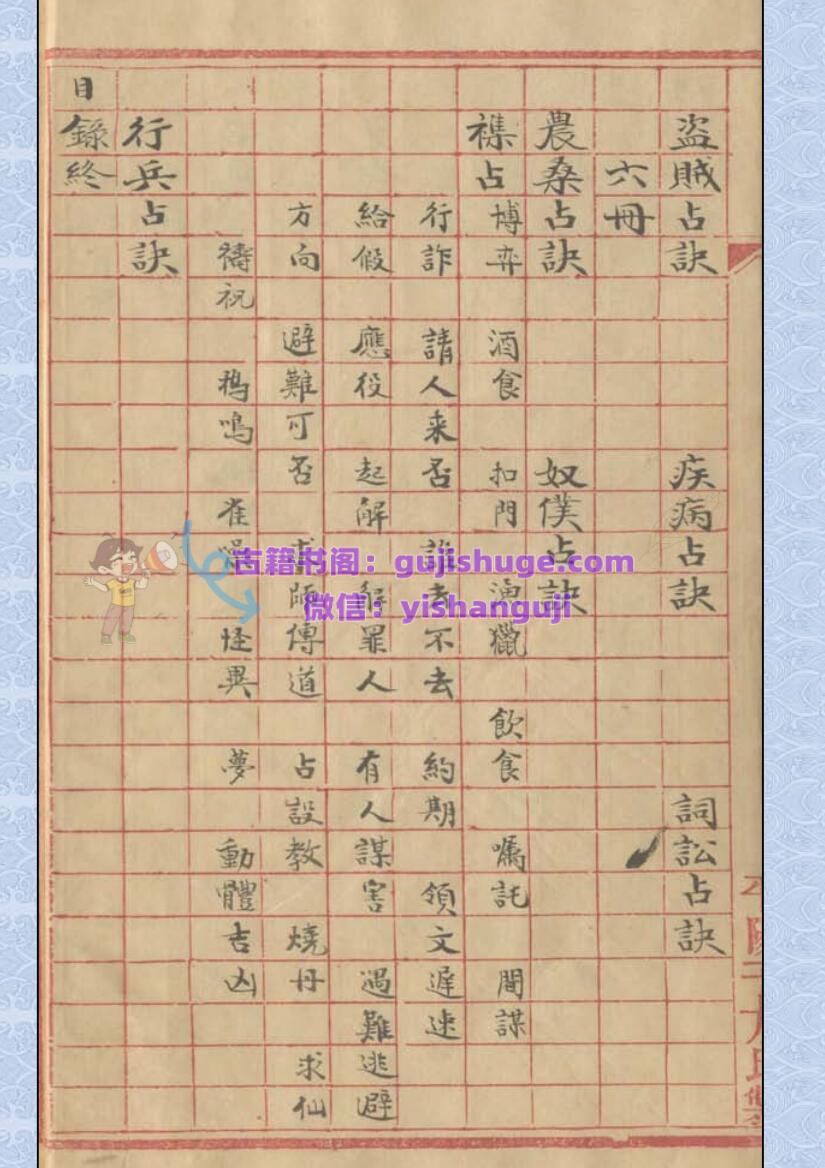 盜賊占訣 疾病占訣 詞訟占訣
六冊
農桑占訣 奴僕占訣
襍占 博弈 酒食 扣門 漁獵 飲食 囑託 間諜
行詐 請人来否 誰去不去 約期 領文遲速
給假 應役 起解 解罪人 有人謀害 遇難逃避
方向 避難可否 求師傳道 占設教 燒丹 求仙
禱祝 鴉鳴 雀噪 怪異 夢 動體吉凶
行兵占訣
目錄終
古籍书阁：gujishuge.com
微信：yishanguji